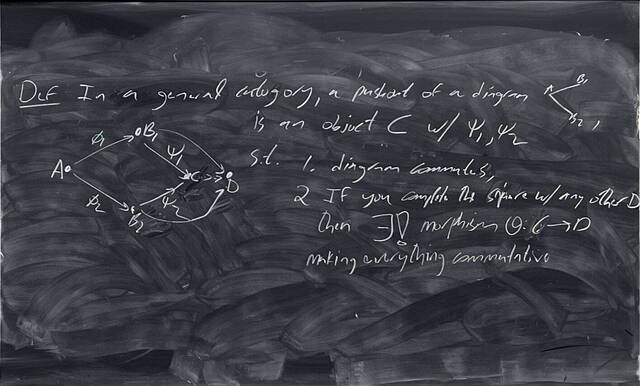 Def In a general category, a pushout of a diagram A B₁ B₂,
is an object C w/ Ψ₁, Ψ₂
s.t. 1. diagram commutes,
2 If you complete the square w/ any other D
then ∃! morphism Θ: C → D
making everything commutative
A φ₁ B₁ Ψ₁ C D
φ₂ B₂ Ψ₂